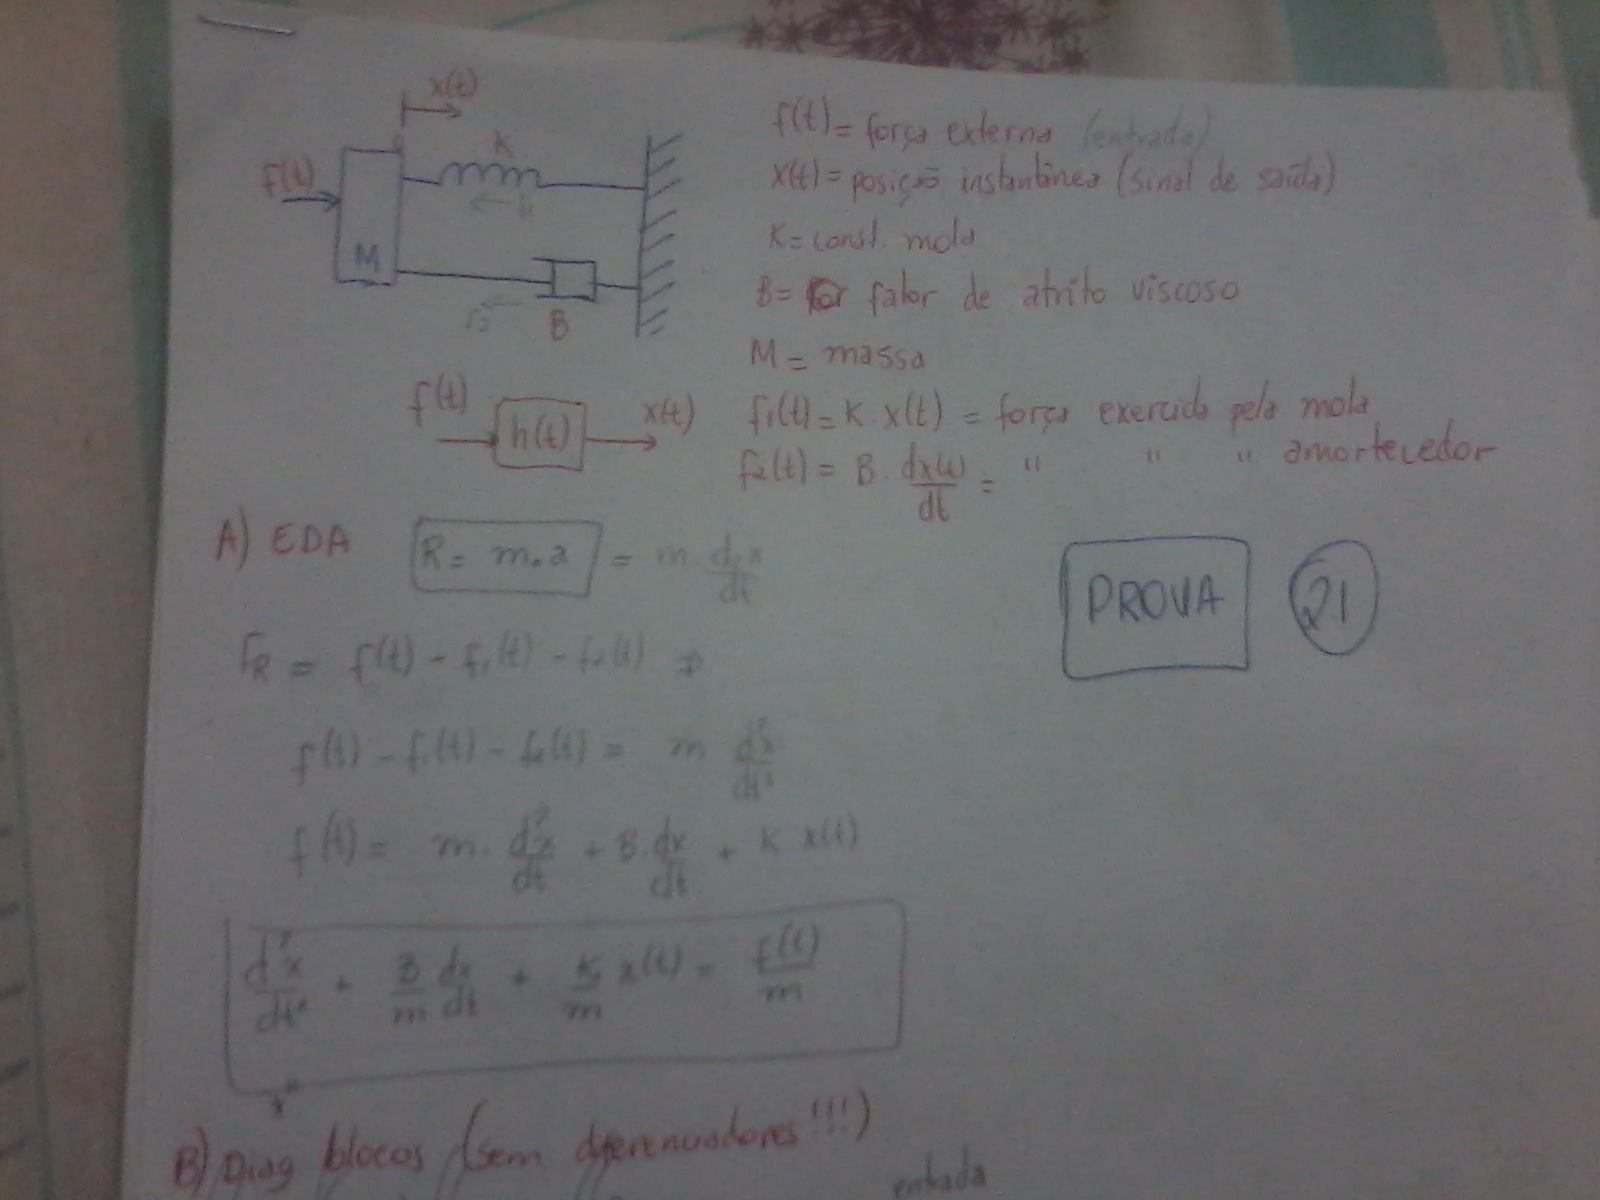 x(t)
F(t)
K
M
f1
f2
B
f(t) = força externa (entrada)
x(t) = posição instantânea (sinal de saída)
K = const. mola
B = fator de atrito viscoso
M = massa
f(t) h(t) x(t)
f1(t) = K. x(t) = força exercida pela mola
f2(t) = B. dx(t)/dt = " " " amortecedor
A) EDA R = m.a = m. d2x/dt
PROVA 21
FR = f(t) - f1(t) - f2(t) ⇒
f(t) - f1(t) - f2(t) = m d²x/dt²
f(t) = m. d²x/dt + B. dx/dt + K x(t)
d²x/dt² + B/m dx/dt + K/m x(t) = f(t)/m
x"
B) Diag blocos (sem diferenciadores!!!)
entrada